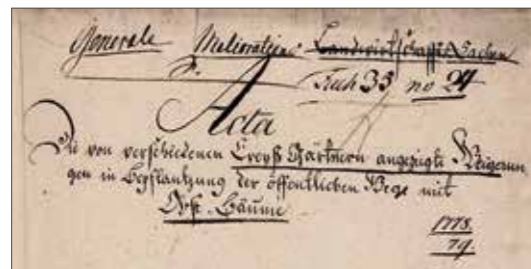 Generale Meliorations Landwirtschafts Sachen
Fach 33 no 24
Acta
Die von verschiedenen Creyß Gärtnern angezeigte Weigerun
gen in Bepflantzung der öffentlichen Wege mit
Obst-Bäume
1778.
79.